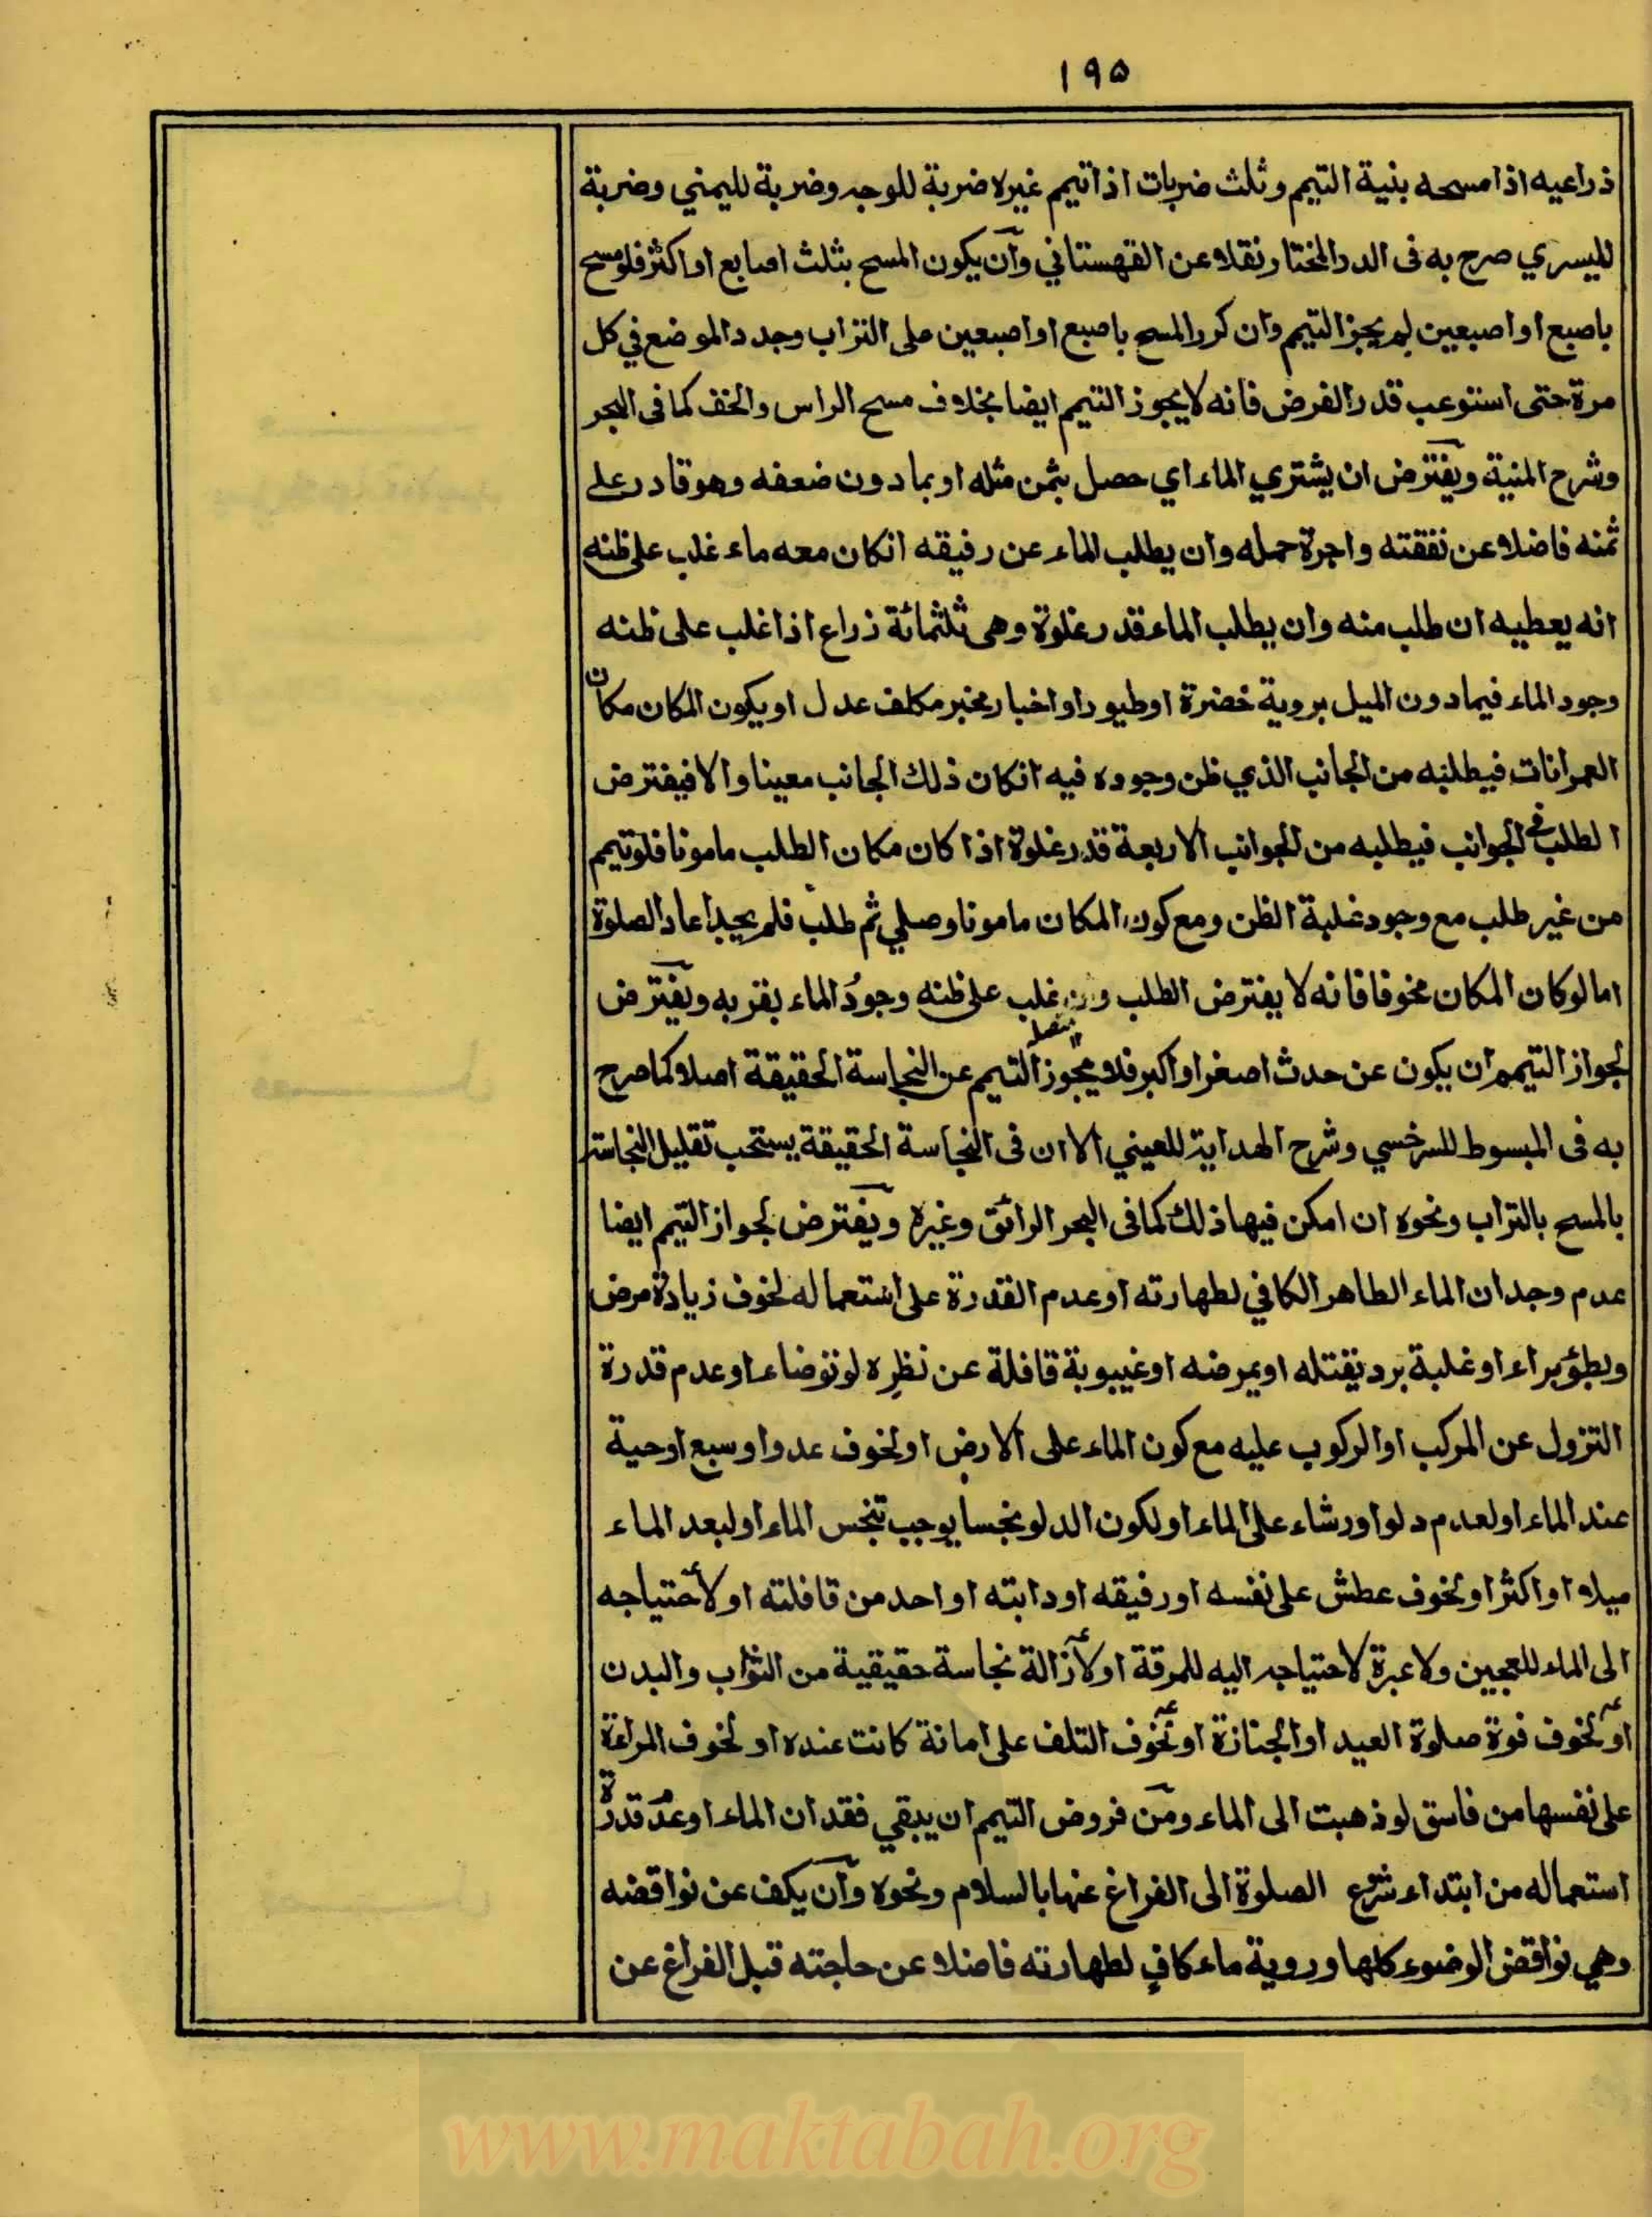 ١٩٥
ذراعيه اذا مسحه بنية التيمم وثلث ضربات اذا تيمم غيره ضربة للوجه وضربة لليمني وضربة
لليسري صرح به فى الدر المختار نقلا عن القهستاني وان يكون المسح بثلث اصابع او اكثر فلو مسح
باصبع او اصبعين لم يجز التيمم وان كرر المسح باصبع او اصبعين على التراب وجدد الموضع في كل
مرة حتى استوعب قدر الفرض فانه لا يجوز التيمم ايضا بخلاف مسح الراس والخف كما فى البحر
وشرح المنية ويفترض ان يشتري الماء اي حصل بثمن مثله او بما دون ضعفه وهو قادر على
ثمنه فاضلا عن نفقته واجرة حمله وان يطلب الماء عن رفيقه انكان معه ماء غلب على ظنه
انه يعطيه ان طلب منه وان يطلب الماء قدر غلوة وهى ثلثمائة ذراع اذا غلب على ظنه
وجود الماء فيما دون الميل بروية خضرة او طيور او اخبار مخبر مكلف عدل او يكون المكان مكان
العمرانات فيطلبه من الجانب الذي ظن وجوده فيه انكان ذلك الجانب معينا والا فيفترض
الطلب فى الجوانب فيطلبه من الجوانب الاربعة قدر غلوة اذا كان مكان الطلب مامونا فلو تيمم
من غير طلب مع وجود غلبة الظن ومع كون المكان مامونا وصلي ثم طلب فلم يجد اعاد الصلوة
اما لو كان المكان مخوفا فانه لا يفترض الطلب وان غلب على ظنه وجود الماء بقربه ويفترض
لجواز التيمم ان يكون عن حدث اصغر او اكبر فلا يجوز التيمم عن النجاسة الحقيقة اصلا كما صرح
به فى المبسوط للسرخسي وشرح الهداية للعيني الا ان فى النجاسة الحقيقة يستحب تقليل النجاسة
بالمسح بالتراب ونحوه ان امكن فيها ذلك كما فى البحر الرائق وغيره ويفترض لجواز التيمم ايضا
عدم وجدان الماء الطاهر الكافي لطهارته او عدم القدرة على استعماله لخوف زيادة مرض
وبطؤ براء او غلبة برد يقتله او يمرضه او غيبوبة قافلة عن نظره لو توضاء او عدم قدرة
النزول عن المركب او الركوب عليه مع كون الماء على الارض او لخوف عدو او سبع او حية
عند الماء او لعدم دلو او رشاء على الماء او لكون الدلو نجسا يوجب تنجس الماء او لبعد الماء
ميلا او اكثر او لخوف عطش على نفسه او رفيقه او دابته او احد من قافلته او لاحتياجه
الى الماء للعجين ولا عبرة لاحتياجه اليه للمرقة او لازالة نجاسة حقيقية من الثواب والبدن
او لخوف فوة صلوة العيد او الجنازة او لخوف التلف على امانة كانت عنده او لخوف المراءة
على نفسها من فاسق لو ذهبت الى الماء ومن فروض التيمم ان يبقي فقدان الماء او عدم قدرة
استعماله من ابتداء شروع الصلوة الى الفراغ عنها بالسلام ونحوه وان يكف عن نواقضه
وهي نواقض الوضوء كلها وروية ماء كاف لطهارته فاضلا عن حاجته قبل الفراغ عن
www.maktabah.org